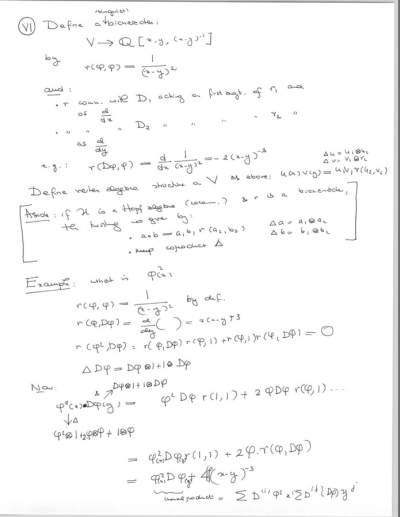 singular
(VI) Define a bicharacter:
V → Q [x-y, (x-y)⁻¹]
by
r(φ,φ) = 1/(x-y)²
and:
• r comm. with D₁ acting on first arg. of r, and
as d/dx
• " " " D₂ " " " r₂ "
as d/dy
e.g.: r(Dφ,φ) = d/dx 1/(x-y)² = -2(x-y)⁻³
Δu = u₁⊗u₂
Δv = v₁⊗v₂
Define vertex algebra structure on V as above: u(x)v(y) = u₁v₁r(u₂,v₂)
Aside: if H is a Hopf algebra (comm.) & r is a bicharacter,
twisting give by:
• a∘b = a₁b₁ r(a₂,b₂)
Δa = a₁⊗a₂
Δb = b₁⊗b₂
• keep coproduct Δ
Example: what is φ²(x)
r(φ,φ) = 1/(x-y)² by def.
r(φ,Dφ) = d/dy ( ) = 2(x-y)⁻³
r(φ²,Dφ) = r(φ,Dφ)r(φ,1)+r(φ,1)r(φ,Dφ) = 0
ΔDφ = Dφ⊗1+1⊗Dφ
Now: Dφ⊗1+1⊗Dφ
φ²(x)Dφ(y) = φ²Dφ r(1,1) + 2φDφ r(φ,1) ...
↓Δ
φ²⊗1+2φ⊗φ+1⊗φ
= φ²(x)Dφ(y)r(1,1) + 2φ.r(φ,Dφ)
= φ²(x)Dφ(y) + 4φ(x-y)⁻³
normal product = Σ D⁽ⁱ⁾φ² xⁱ Σ D⁽ʲ⁾(Dφ) yʲ